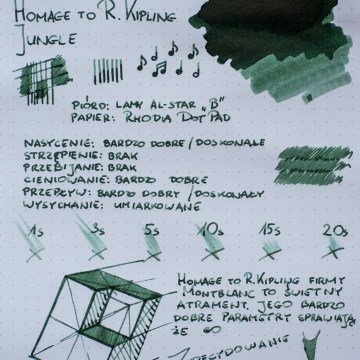 HOMAGE TO R. KIPLING
JUNGLE
PIÓRO: LAMY AL-STAR „B"
PAPIER: RHODIA DOT PAD
NASYCENIE: BARDZO DOBRE/DOSKONAŁE
STRZĘPIENIE: BRAK
PRZEBIJANIE: BRAK
CIENIOWANIE: BARDZO DOBRE
PRZEPŁYW: BARDZO DOBRY/DOSKONAŁY
WYSYCHANIE: UMIARKOWANE
1s 3s 5s 10s 15s 20s
HOMAGE TO R. KIPLING FIRMY
MONTBLANC TO ŚWIETNY
ATRAMENT. JEGO BARDZO
DOBRE PARAMETRY SPRAWIAJĄ
ŻE GO
ZDECYDOWANIE